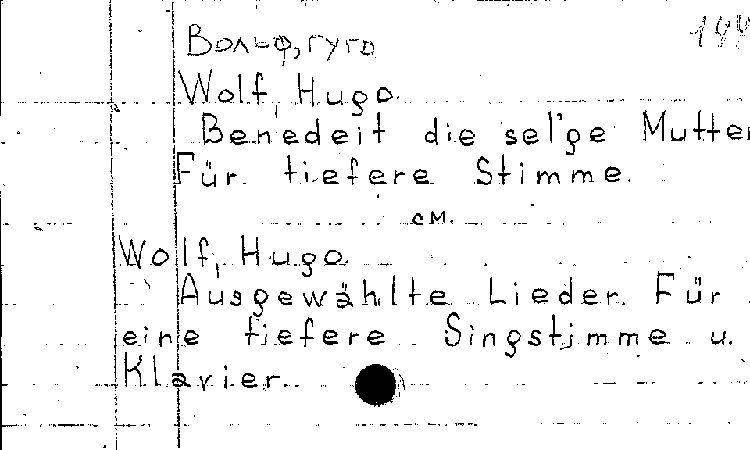 Вольф, Гуго
Wolf, Hugo.
Benedeit die sel'ge Mutter
Für tiefere Stimme.
см.
Wolf, Hugo
Ausgewählte Lieder. Für
eine tiefere Singstimme u.
Klavier.